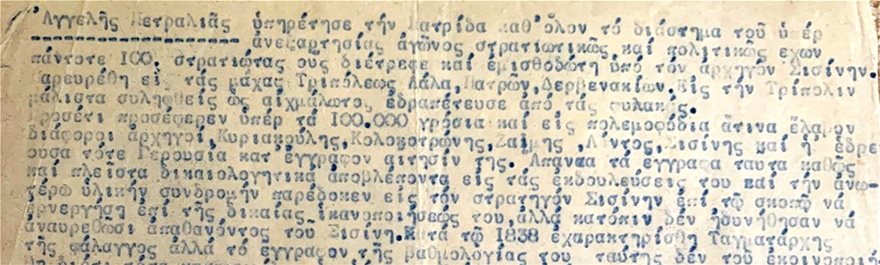 Ἀγγελῆς Πετραλιᾶς ὑπηρέτησε τήν Πατρίδα καθ'ὅλον τό διάστημα τοῦ ὑπέρ
ἀνεξαρτησίας ἀγῶνος στρατιωτικῶς καί πολιτικῶς ἔχων
πάντοτε 100. στρατιώτας ους διέτρεφε καί ἐμισθοδώτη ὑπό τόν ἀρχηγόν Σισίνην.
Παρευρέθη εἰς τάς μάχας Τριπόλεως Λάλα,Πατρῶν,Δερβενακίων.Εἰς τήν Τρίπολιν
μάλιστα συληφθείς ὡς αἰχμάλωτος ἐδραπέτευσε ἀπό τάς φυλακάς.
Προσέτι προσέφερεν ὑπέρ τά 100.000 γρόσια καί εἰς πολεμοφόδια ἅτινα ἔλαβον
διάφοροι ἀρχηγοί,Κυριακούλης,Κολοκοτρώνης,Ζαίμης ,Λόντος,Σισίνης καί ἡ ἑδρεύ
ουσα τότε Γερουσία κατ ἔγγραφον αἴτησίν της. Ἅπαντα τά ἔγγραφα ταυτα καθώς
καί πλεῖστα δικαιολογητικά ἀποβλέποντα εἰς τάς ἐκδουλεύσεις του καί τήν ἀνω-
τέρω ὑλικήν συνδρομήν παρέδοκεν εἰς τόν στρατηγόν Σισίνην ἐπί τῷ σκοπῷ νά
ἐνεργήση ἐπί τῆς δικαίας ἱκανοποιήσεώς του,ἀλλά κατόπιν δέν ἠδυνήθησαν νά
ἀναυρεθωσι ἀπαθανόντος του Σισίνη.Κατά τῷ 1838 ἐχαρακτηρίσθη Ταγματάρχης
τῆς φάλαγγος ἀλλά τό ἔγγραφον τῆς βαθμολογίας του ταύτης δέν τοῦ ἐκοινοποιή